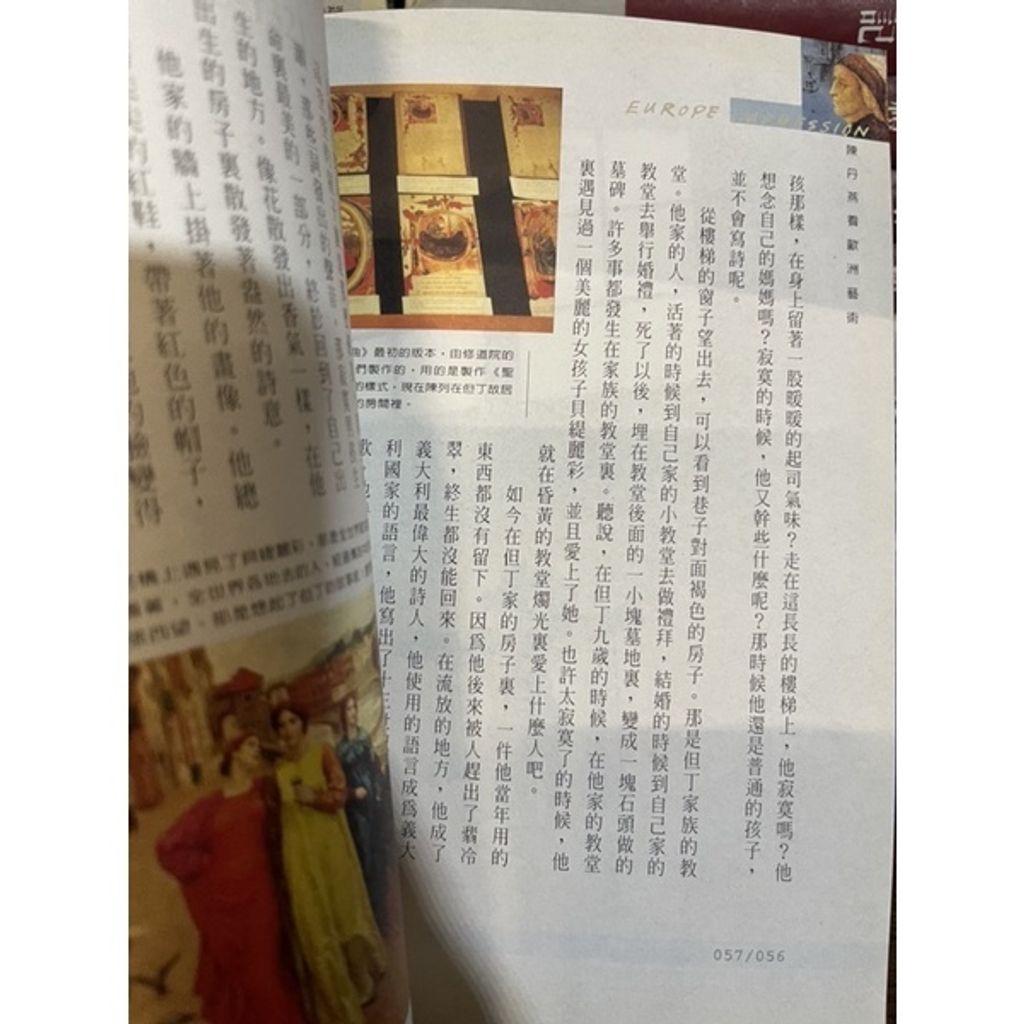 EUROPE IMPRESSION
陳丹燕看歐洲藝術
孩那樣，在身上留著一股暖暖的起司氣味？走在這長長的樓梯上，他寂寞嗎？他
想念自己的媽媽嗎？寂寞的時候，他又幹些什麼呢？那時候他還是普通的孩子，
並不會寫詩呢。
從樓梯的窗子望出去，可以看到巷子對面褐色的房子。那是但丁家族的教
堂。他家的人，活著的時候到自己家的小教堂去做禮拜，結婚的時候到自己家的
教堂去舉行婚禮，死了以後，埋在教堂後面的一小塊墓地裏，變成一塊石頭做的
墓碑。許多事都發生在家族的教堂裏。聽說，在但丁九歲的時候，在他家的教堂
裏遇見過一個美麗的女孩子貝緹麗彩，並且愛上了她。也許太寂寞了的時候，他
就在昏黃的教堂燭光裏愛上什麼人吧。
如今在但丁家的房子裏，一件他當年用的
東西都沒有留下。因爲他後來被人趕出了翡冷
翠，終生都沒能回來。在流放的地方，他成了
義大利最偉大的詩人，他使用的語言成爲義大
利國家的語言，他寫出了十三世
曲》最初的版本，由修道院的
們製作的，用的是製作《聖
的樣式，現在陳列在但丁故居
的房間裡。
057/056
命裏最美的一部分，終於回到了自己出
生的地方。像花散發出香氣一樣，在他
出生的房子裏散發著盎然的詩意。
他家的牆上掛著他的畫像。他總
的紅鞋，帶著紅色的帽子，